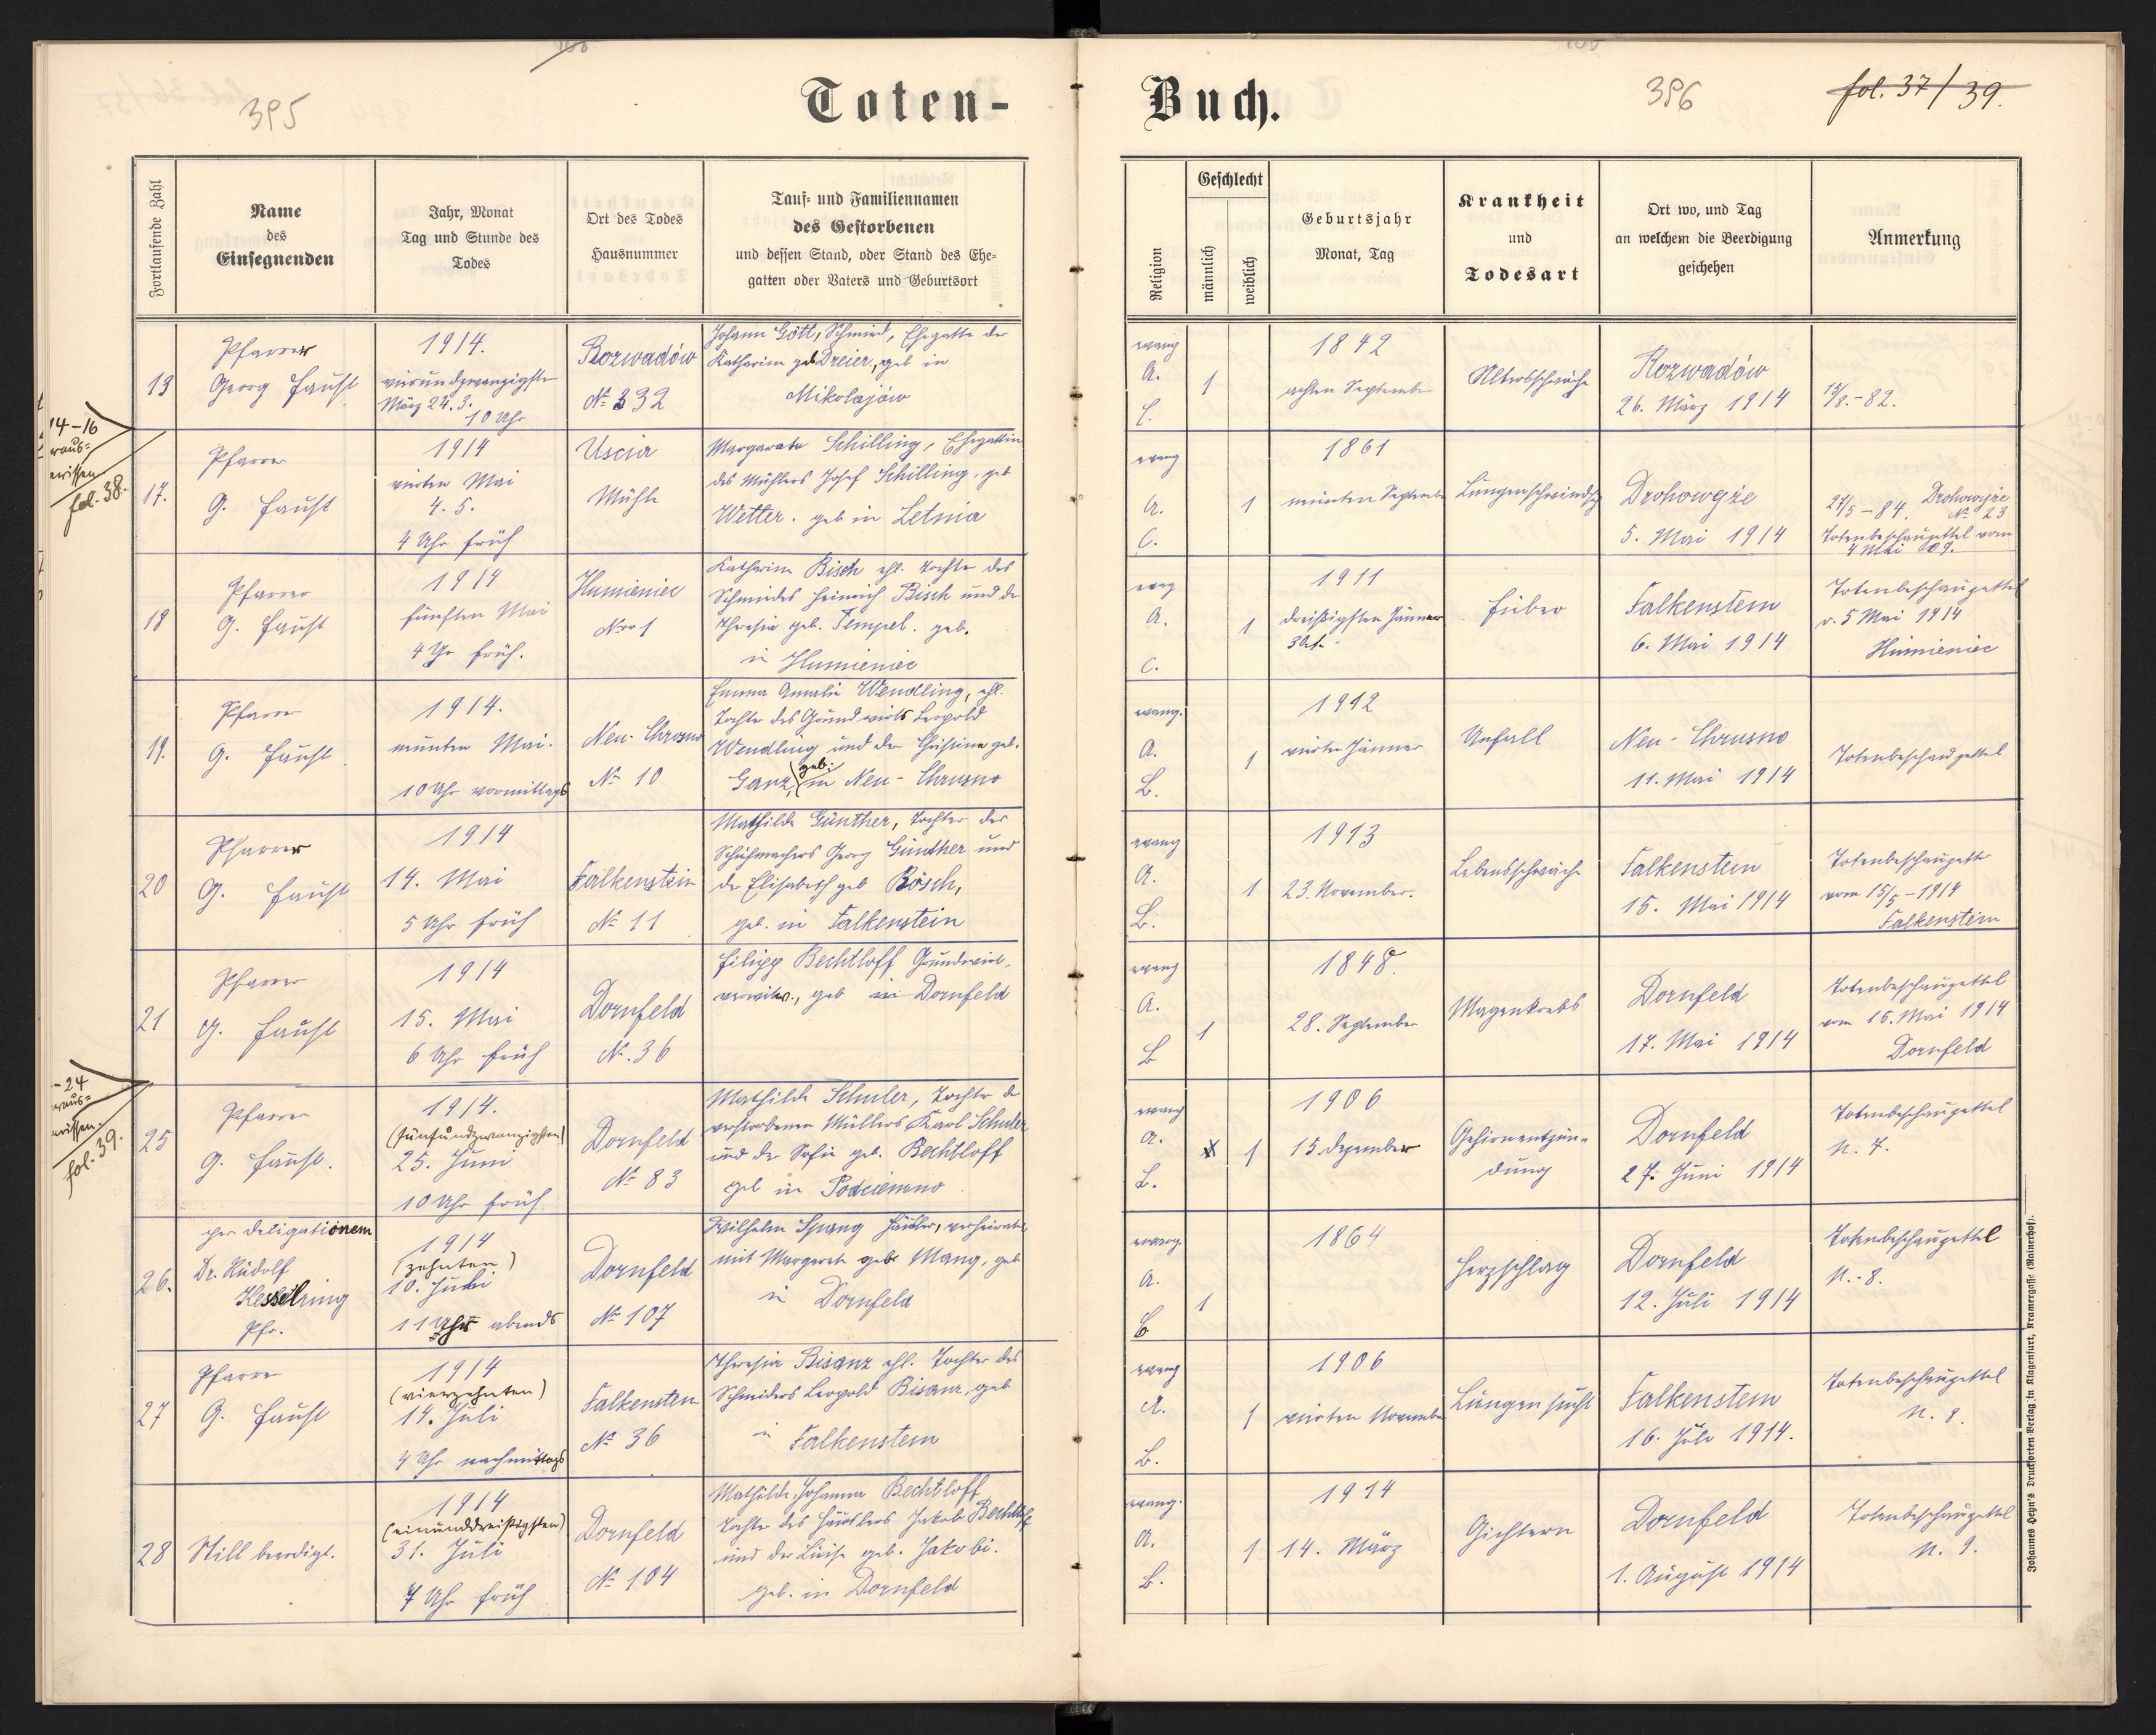 395
Toten-
Buch.
396
fol. 37/39.
Fortlaufende Zahl
Name
des
Einsegnenden
Jahr, Monat
Tag und Stunde des
Todes
Ort des Todes
Hausnummer
Tauf- und Familiennamen
des Gestorbenen
und dessen Stand, oder Stand des Ehe-
gatten oder Vaters und Geburtsort
Religion
Geschlecht
männlich
weiblich
Geburtsjahr
Monat, Tag
Krankheit
und
Todesart
Ort wo, und Tag
an welchem die Beerdigung
geschehen
Anmerkung
13
Pfarrer
Georg Faust
1914.
vierundzwanzigsten
März 24. 3.
10 Uhr
Rozwadów
№ 332
Johann Gött, Schmied, Ehegatte der
Katharina geb Dreier, geb in
Mikolajów
evang
A.
C.
1
1842
achten September
Altersschwäche
Rozwadów
26. März 1914
15/8.-82.
14-16
fol. 38.
17.
Pfarrer
G. Faust
1914
vierten Mai
4. 5.
4 Uhr früh
Uscia
Mühle
Margareta Schilling, Ehegattin
des Müllers Josef Schilling, geb
Wetter. geb in Letnia
evang
A.
C.
1
1861
neunten September
Lungenschwindsucht
Drohowyże
5. Mai 1914
27/5-84. Drohowyże
№ 23
Totenbeschauzettel vom
4 Mai
18
Pfarrer
G. Faust
1914
fünften Mai
4 Uhr früh.
Humieniec
Nro 1
Katharina Bisch ehl. Tochter des
Schmiedes Heinrich Bisch und der
Theresia geb. Tempel. geb.
in Humieniec
evang
A.
C.
1
1911
dreißigsten Jänner
30/1.
Fieber
Falkenstein
6. Mai 1914
Totenbeschauzettel
v. 5 Mai 1914
Humieniec
19.
Pfarrer
G. Faust
1914.
neunten Mai.
10 Uhr vormittags
Neu-Chrusno
№ 10
Emma Amalie Wendling, ehl.
Tochter des Grundwirts Leopold
Wendling und der Christine geb.
Ganz, geb: in Neu-Chrusno
evang.
A.
B.
1
1912
vierten Jänner
Unfall
Neu-Chrusno
11. Mai 1914
Totenbeschauzettel
20
Pfarrer
G. Faust
1914
14. Mai
5 Uhr früh
Falkenstein
№ 11
Mathilde Günther, Tochter des
Schuhmachers Georg Günther und
der Elisabeth geb Bösch,
geb. in Falkenstein
evang
A.
B.
1
1913
23. November.
Lebensschwäche
Falkenstein
15. Mai 1914
Totenbeschauzettel
vom 15/5-1914
Falkenstein
21
Pfarrer
G. Faust
1914
15. Mai
6 Uhr früh
Dornfeld
№. 36
Filipp Bechtloff Grundwirt,
verwitw., geb in Dornfeld
evang
A.
B
1
1848.
28. September
Magenkrebs
Dornfeld
17. Mai 1914
Totenbeschauzettel
vom 16. Mai 1914
Dornfeld
-24
fol. 39.
25
Pfarrer
G. Faust.
1914.
(fünfundzwanzigsten)
25. Juni
10 Uhr früh.
Dornfeld
№ 83
Mathilde Schuler, Tochter des
verstorbenen Müllers Karl Schuler
und der Sofie geb. Bechtloff
geb in Podciemno
evang
A.
B.
1
1906
15 Dezember
Gehirnentzün-
dung
Dornfeld
27. Juni 1914
Totenbeschauzettel
N. 7.
26.
per deligationem
Dr. Rudolf
Kesselring
Pfr.
1914
(zehnten)
10. Juli
11 Uhr abends
Dornfeld
№ 107
Wilhelm Spang Häusler, verheiratet
mit Margarete geb Mang, geb
in Dornfeld
evang.
A.
B
1
1864
Herzschlag
Dornfeld
12. Juli 1914
Totenbeschauzettel
N.-8.
27
Pfarrer
G. Faust
1914
(vierzehnten)
14. Juli
4 Uhr nachmittags
Falkenstein
№ 36
Theresia Bisanz ehl. Tochter des
Schneiders Leopold Bisanz, geb
in Falkenstein
evang
A.
B.
1
1906
vierten November
Lungensucht
Falkenstein
16. Juli 1914.
Totenbeschauzettel
N. 8.
28
Still beerdigt.
1914
(einunddreißigsten)
31. Juli
7 Uhr früh
Dornfeld
№ 104
Mathilde Johanna Bechtloff
Tochter des Häuslers Jakob Bechtloff
und der Luise geb. Jakobi.
geb. in Dornfeld
evang.
A.
B.
1
1914
14. März
Gichtern
Dornfeld
1. August 1914
Totenbeschauzettel
N. 9.
Johannes Heyn's Drucksorten Verlag in Klagenfurt, Kramergasse (Rainerhof).